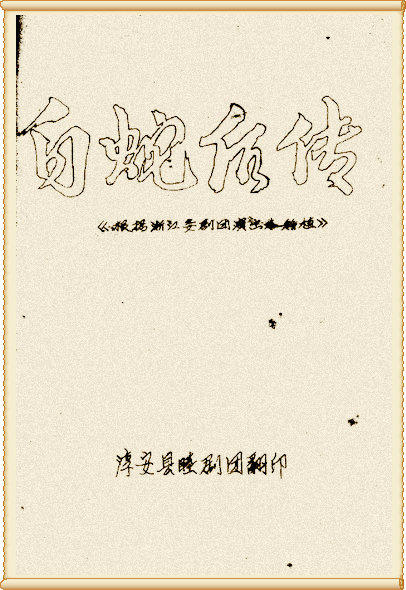 白蛇后传
《根据浙江婺剧团演出本移植》
淳安县睦剧团翻印